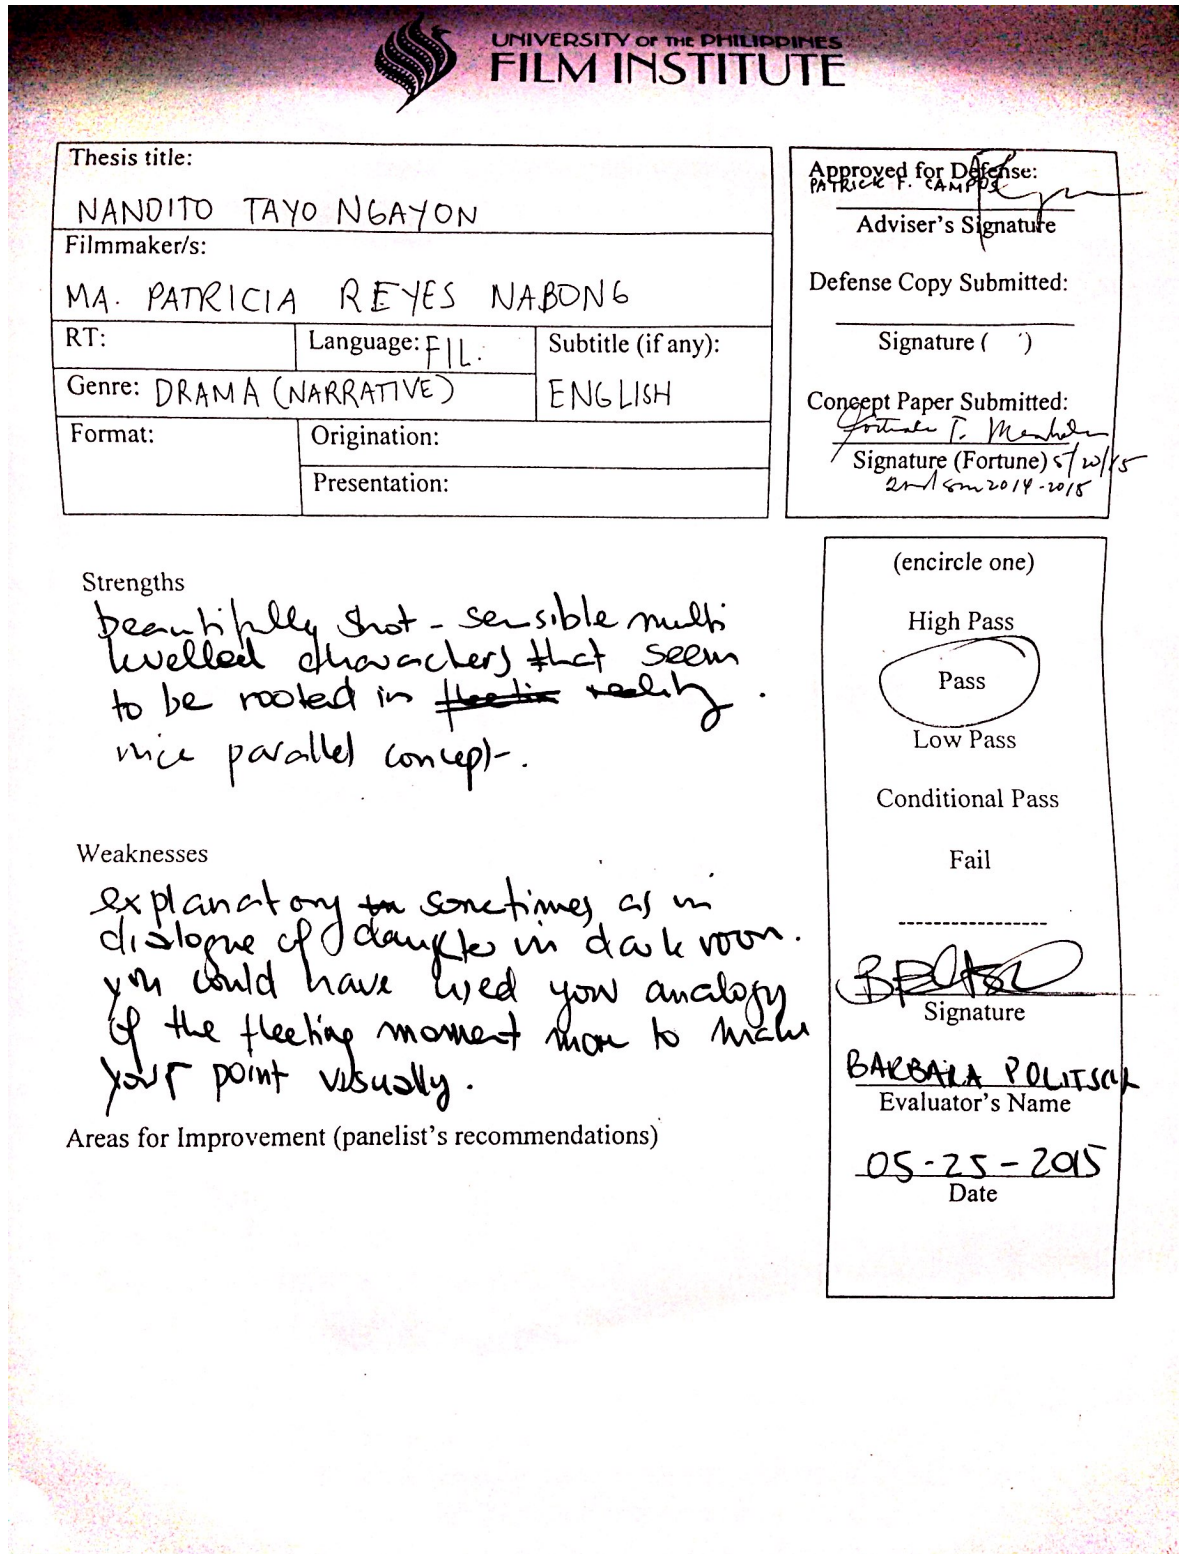 UNIVERSITY OF THE PHILIPPINES
FILM INSTITUTE
Thesis title:
NANDITO TAYO NGAYON
Filmmaker/s:
MA. PATRICIA REYES NABONG
RT:
Language: FIL.
Subtitle (if any):
ENGLISH
Genre: DRAMA (NARRATIVE)
Format:
Origination:
Presentation:
Approved for Defense:
PATRICK F. CAMPOS
Adviser's Signature
Defense Copy Submitted:
Signature ( )
Concept Paper Submitted:
Signature (Fortune) 5/20/15
2nd sem 2014-2015
Strengths
beautifully shot - sensible multi
levelled characters that seem
to be rooted in reality.
nice parallel concept.
Weaknesses
explanatory sometimes as in
dialogue of daughter in dark room.
you could have used your analogy
of the fleeting moment more to make
your point visually.
Areas for Improvement (panelist's recommendations)
(encircle one)
High Pass
Pass
Low Pass
Conditional Pass
Fail
Signature
BARBARA POLITSCH
Evaluator's Name
05-25-2015
Date